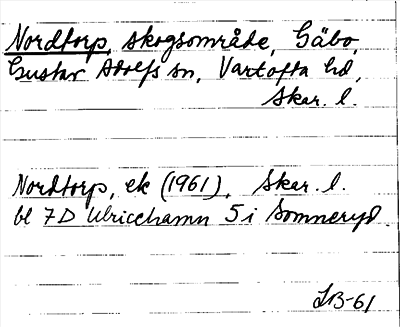 Nordtorp, skogsområde, Gäbo,
Gustav Adolfs sn, Vartofta hd,
Skar. l.
Nordtorp, ek (1961), Skar. l.
bl 7D Ulricehamn 5 i Sommeryd
LB-61